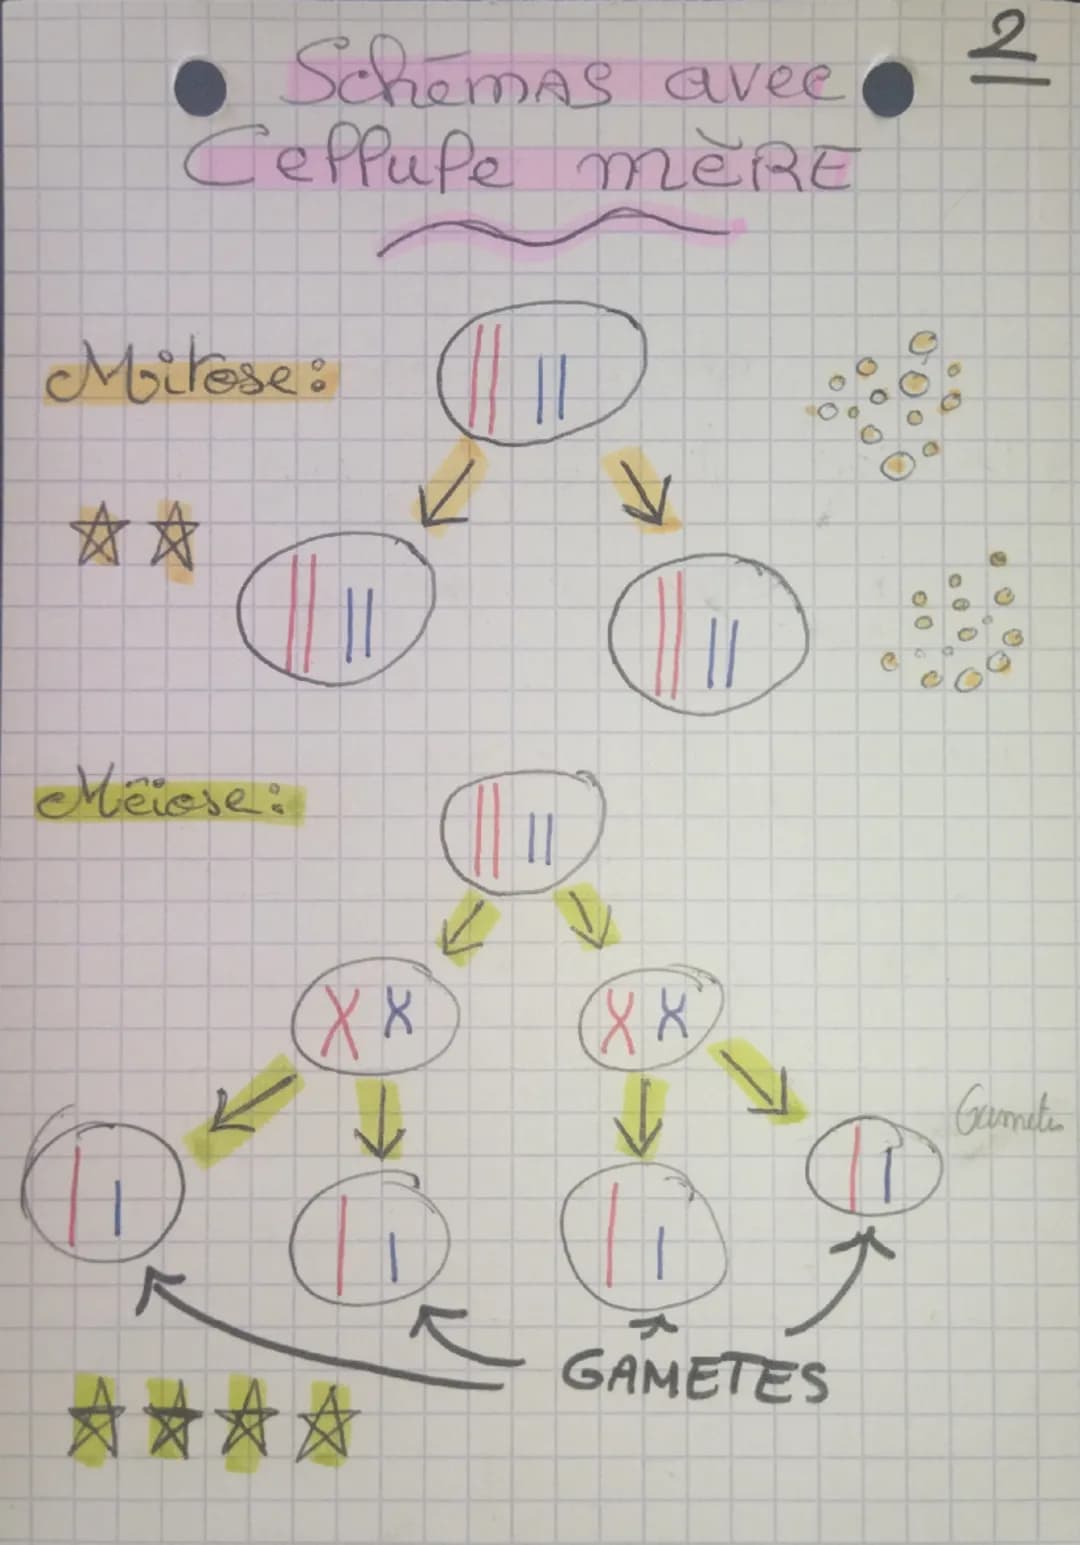 2
Schémas avec
Cellule mère
Mitose:
Méiose:
Gametes
GAMETES